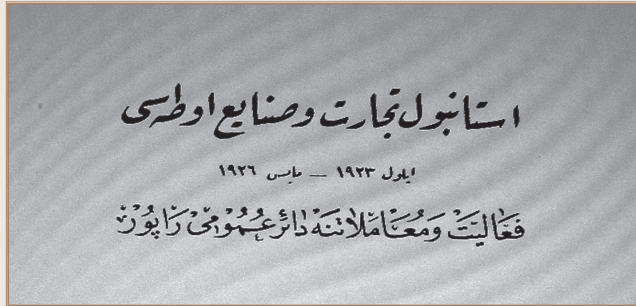 استانبول تجارت وصنايع اوطه‌سى
ايلول ١٩٢٣ — مايس ١٩٢٦
فَعَّاليَّتْ وَمُعَامَلاَتنَه دَائرْ عُمُوْمِىْ رَاپُوْرْ